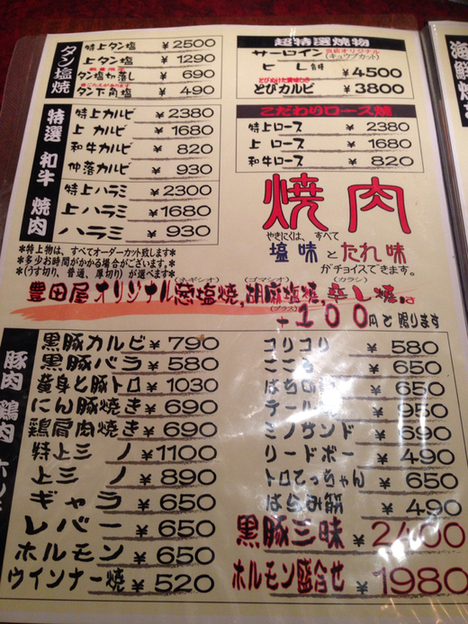 タン塩焼
特上タン塩 ¥2500
上タン塩 ¥1290
タン塩切落し ¥690
タン下角塩 ¥490
特選 和牛 焼肉
特上カルビ ¥2380
上カルビ ¥1680
和牛カルビ ¥820
仲落カルビ ¥930
特上ハラミ ¥2300
上ハラミ ¥1680
ハラミ ¥930
*特上物は、すべてオーダーカット致します*
*多少お時間がかかる場合がございます。*
*(うす切り、普通、厚切り)が選べます*
超特選焼物
サーロイン
(キュウブカット)
ヒレ ¥4500
とびカルビ ¥3800
こだわりロース焼
特上ロース ¥2380
上ロース ¥1680
和牛ロース ¥820
焼肉
やきにくは、すべて
塩味とたれ味
がチョイスできます。
(ネギシオ) (ゴマシオ) (カラシ)
豊田屋オリジナル葱塩焼,胡麻塩焼,辛し焼,
(プラス)
+100円と限ります
豚肉 鶏肉
黒豚カルビ ¥790
黒豚バラ ¥580
産身と豚トロ ¥1030
にん豚焼き ¥690
鶏肩肉焼き ¥690
特上ミノ ¥1100
上ミノ ¥890
ギャラ ¥650
レバー ¥650
ホルモン ¥650
ウインナー焼 ¥520
コリコリ ¥580
こころ ¥650
はちのす ¥650
テール ¥950
ミノサンド ¥690
リードボー ¥490
トロてっちゃん ¥650
はらみ筋 ¥490
黒豚三昧 ¥2400
ホルモン盛合せ ¥1980
海鮮焼